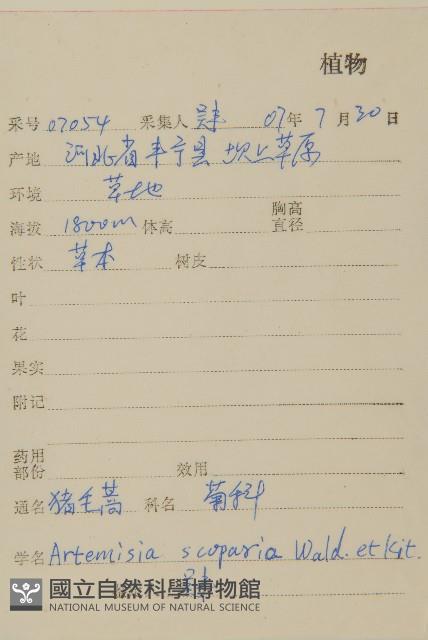 植物
采号 07054 采集人 07年 7月30日
产地 河北省丰宁县坝上草原
环境 草地
海拔 1800m 体高 胸高直径
性状 草本 树皮
叶
花
果实
附记
药用部份 效用
通名 猪毛蒿 科名 菊科
学名 Artemisia scoparia Wald. et Kit.
國立自然科學博物館
NATIONAL MUSEUM OF NATURAL SCIENCE